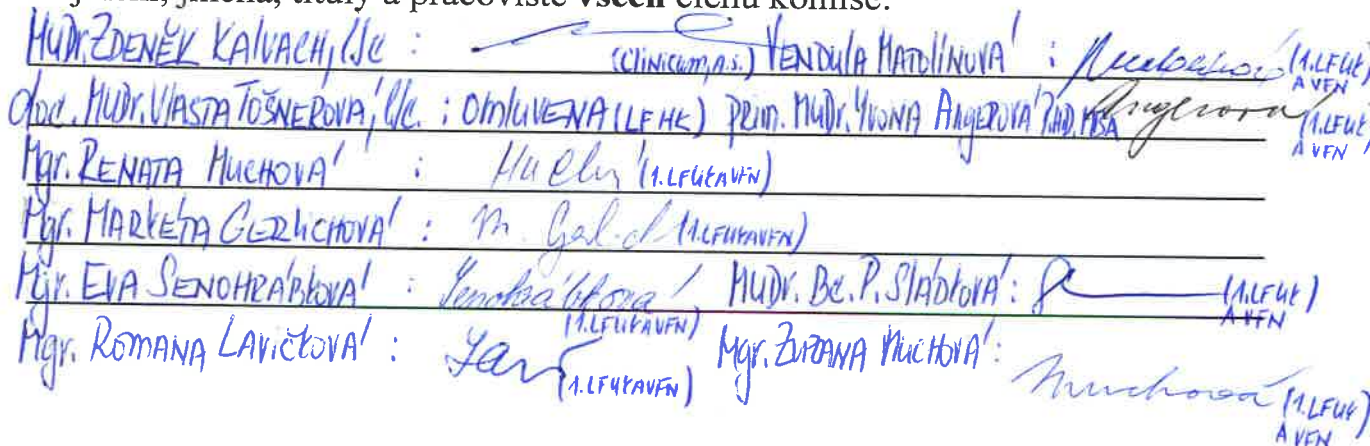 jmena, tituly a pracoviště všech členů komise:
MUDr. ZDENĚK KALVACH, CSc : (Clinicum, a.s.) VENDULA MATOLÍNOVÁ : (1.LFUK A VFN)
doc. MUDr. VLASTA TOŠNEROVÁ, CSc. : OMLUVENA (LF HK) prim. MUDr. YVONA ANGEROVÁ PhD. MBA Angerova (1.LFUK A VFN)
Mgr. RENATA MUCHOVÁ : (1.LFUKAVFN)
Mgr. MARKÉTA GERLICHOVÁ : (1.LFUKAVFN)
Mgr. EVA SENOHRÁBKOVÁ : Senohrábková (1.LFUKAVFN) MUDr. Bc. P. SLÁDKOVÁ : (1.LFUK A VFN)
Mgr. ROMANA LAVIČKOVÁ : (1.LFUKAVFN) Mgr. ZUZANA MUCHOVÁ : Muchová (1.LFUK A VFN)